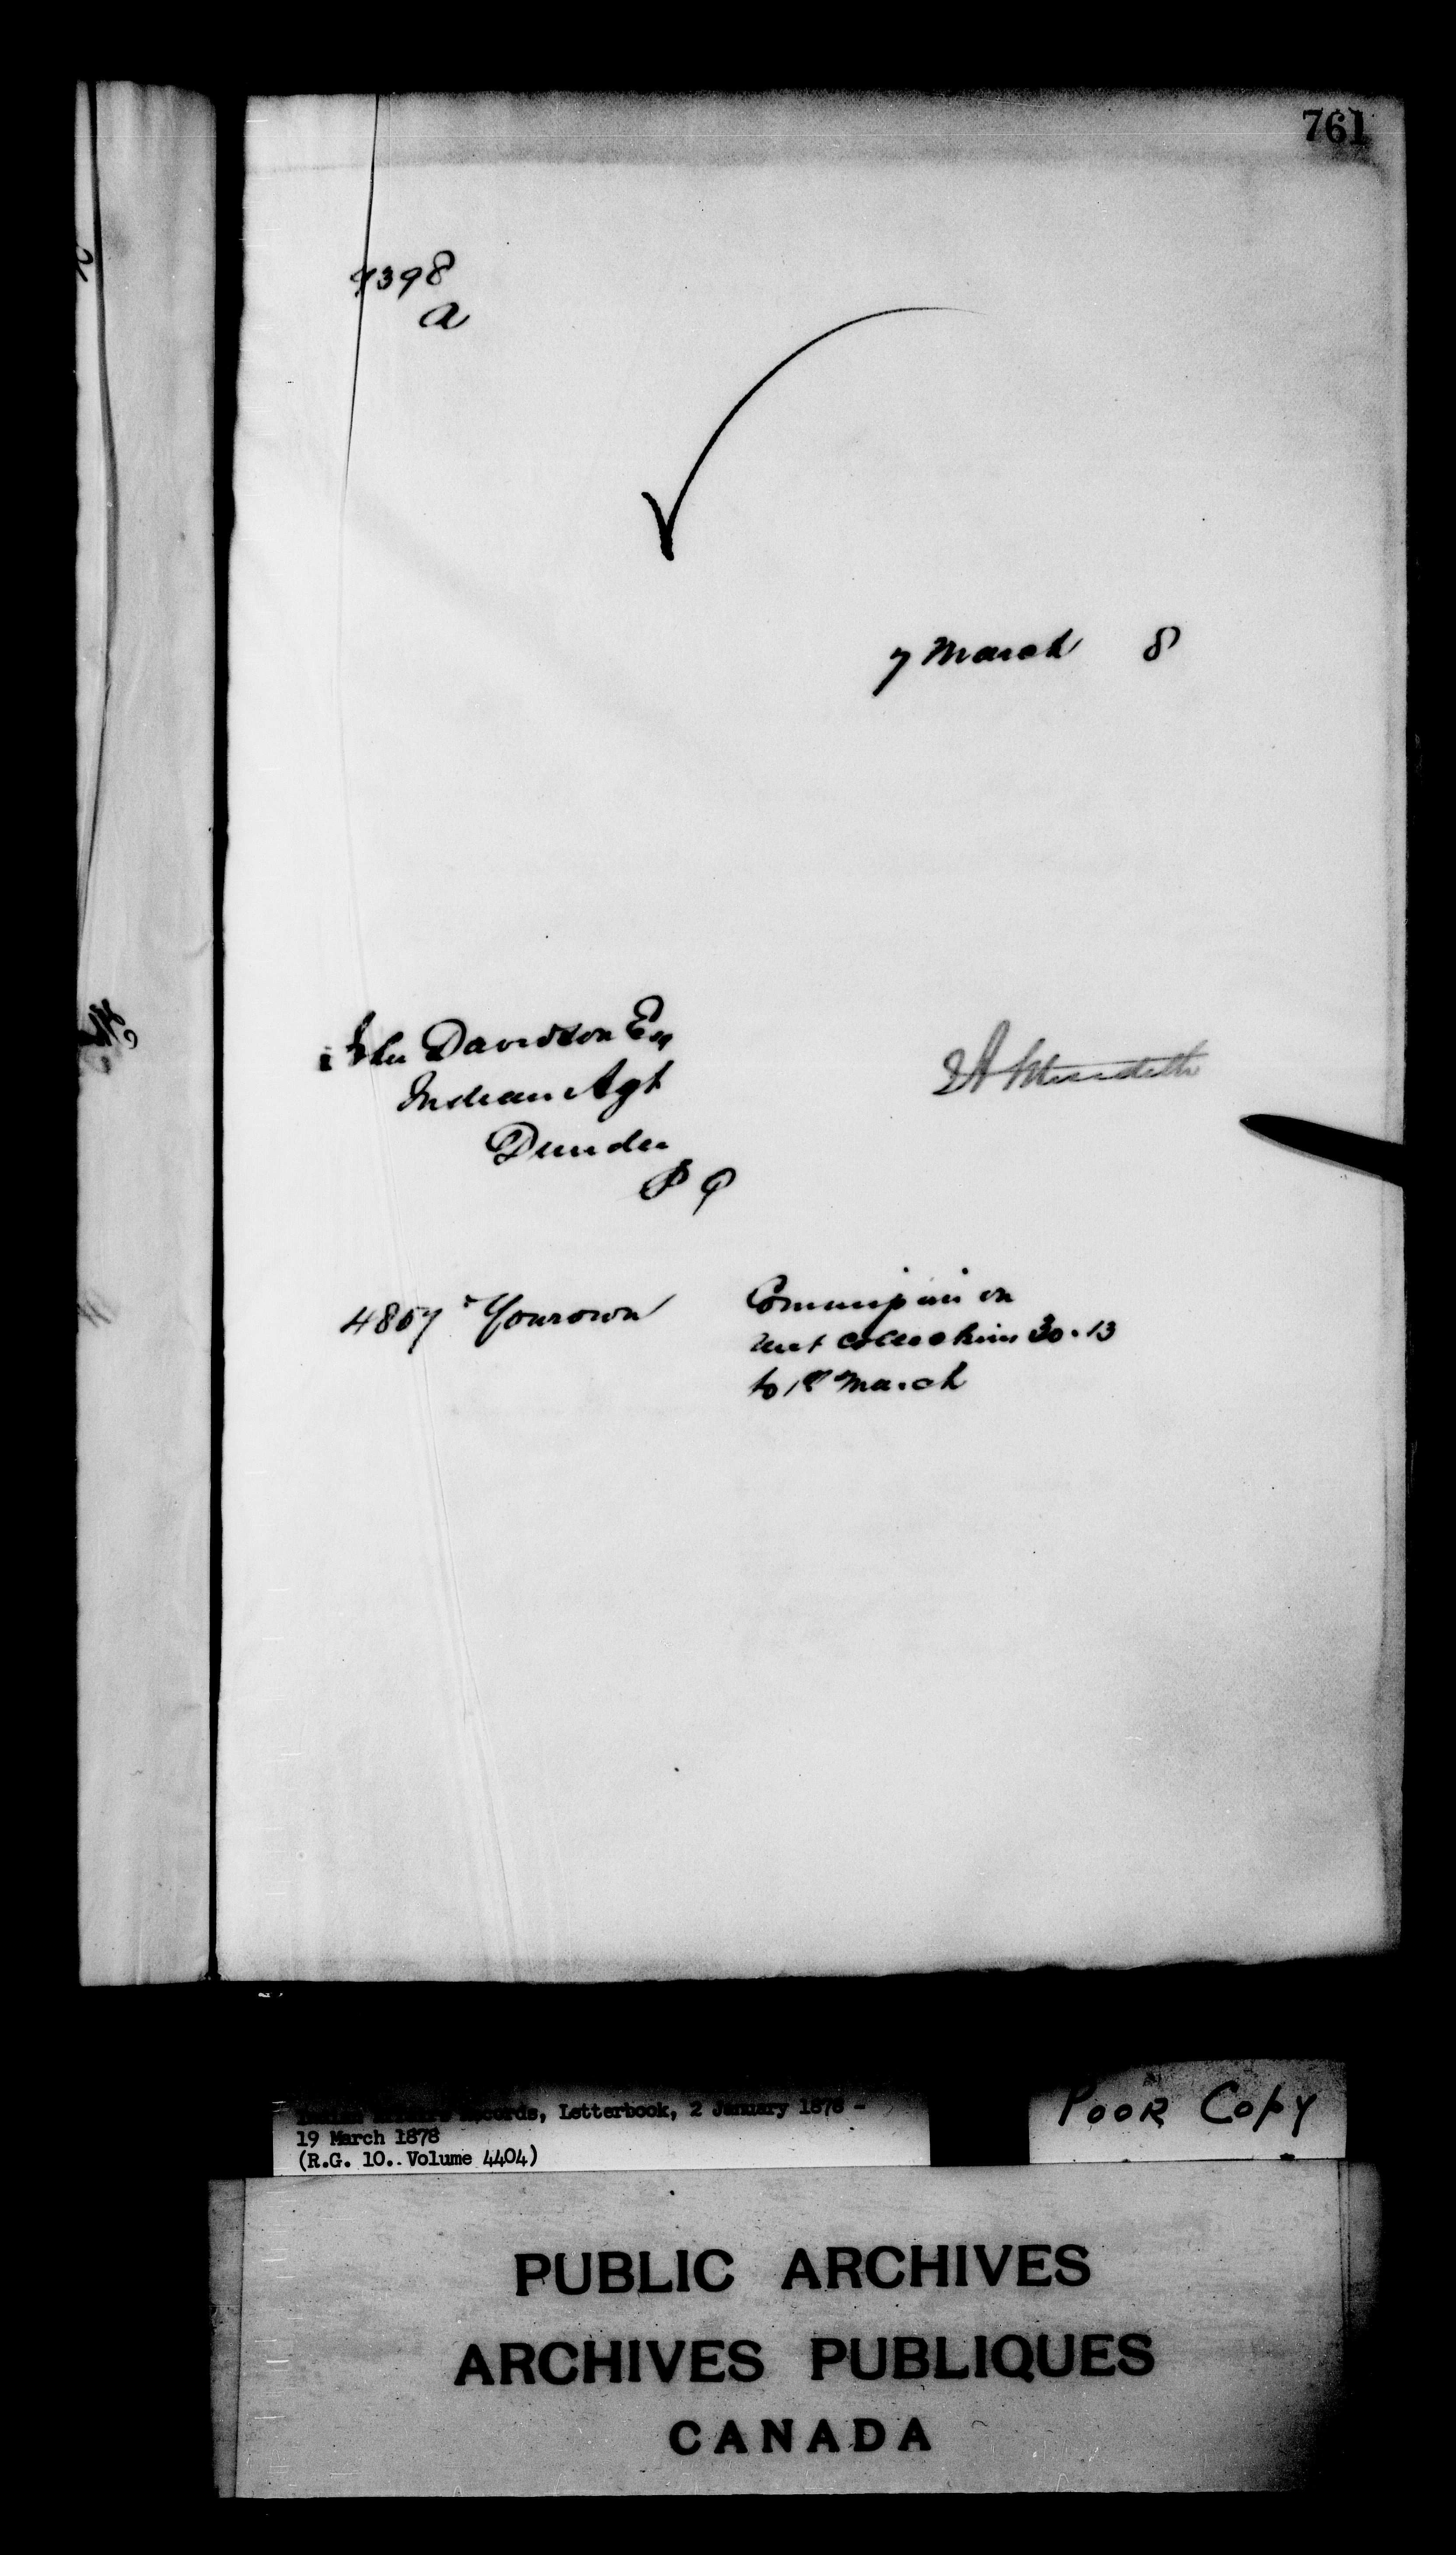 761
9398
a
7 March 8
John Davidson Esq
Indian Agt
Dundee
P Q
4857 Your own
Commission on
rent collections 30.13
to 1st March
Records, Letterbook, 2 January 1878 -
19 March 1878
(R.G. 10.. Volume 4404)
POOR COPY
PUBLIC ARCHIVES
ARCHIVES PUBLIQUES
CANADA